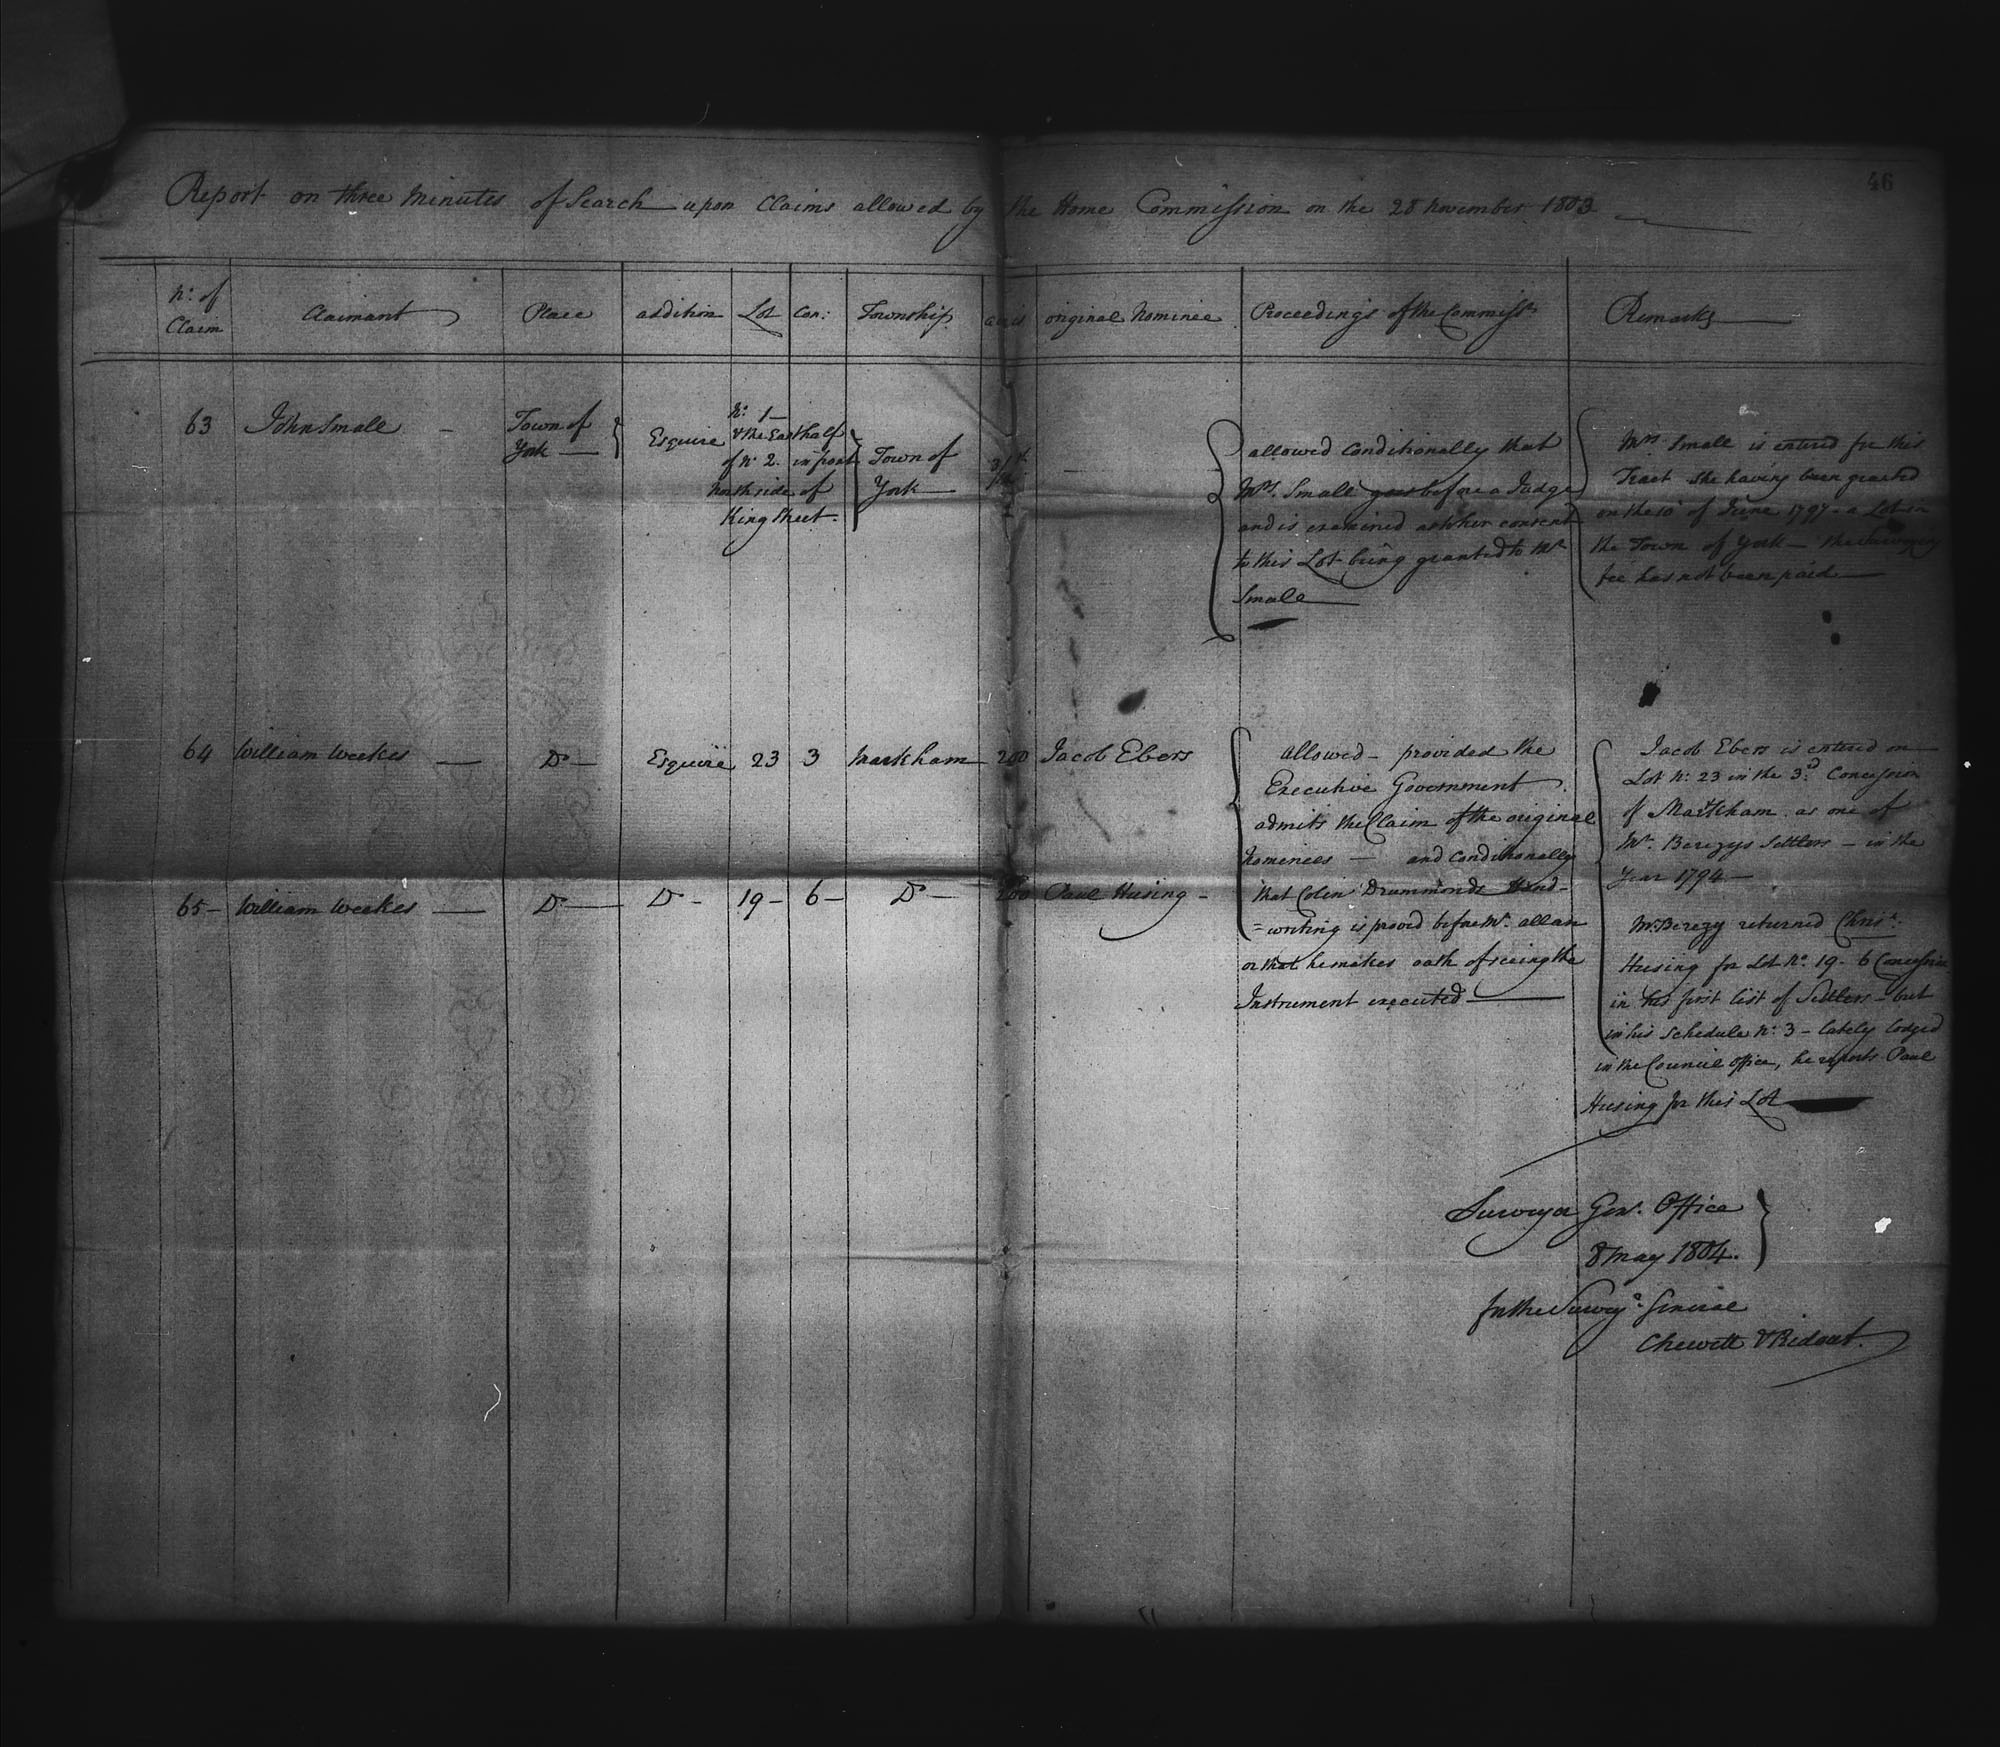 46
Report on three Minutes of Search upon Claims allowed by the Home Commission on the 28 November 1803
No. of Claim
Claimant
Place
addition
Lot
Con:
Township
acres
original Nominee
Proceedings of the Commissrs
Remarks
63
John Small
Town of
York
Esquire
No. 1
& the East half
of No 2. in front
North side of
King Street.
Town of
York
allowed Conditionally that
Mrs. Small goes before a Judge
and is examined as to her consent
to this Lot being granted to Mr
Small
Mrs Small is entered for this
Tract she having been granted
on the 10 of June 1797 - a Lot in
the Town of York - the Surveying
fee has not been paid
64
William Weekes
Do
Esquire
23
3
Markham
200
Jacob Ebers
allowed - provided the
Executive Government
admits the Claim of the original
Nominees - and Conditionally
that Colin Drummonds Hand-
=writing is proved before Mr. allan
or that he makes oath of seeing the
Instrument executed
Jacob Ebers is entered on
Lot No: 23 in the 3rd Concession
of Markham as one of
Mr. Berczys Settlers - in the
Year 1794 -
65 -
William Weekes
Do
Do -
19 -
6 -
Do -
200
Paul Husing -
Mr. Berczy returned Chrisr.
Husing for Lot No. 19 - 6 Concession
in his first list of Settlers - but
in his Schedule No: 3 - lately lodged
in the Council Office, he reports Paul
Husing for this Lot
Surveyor Genl. Office
8 May 1804.
for the Surveyr General
Chewett & Ridout.